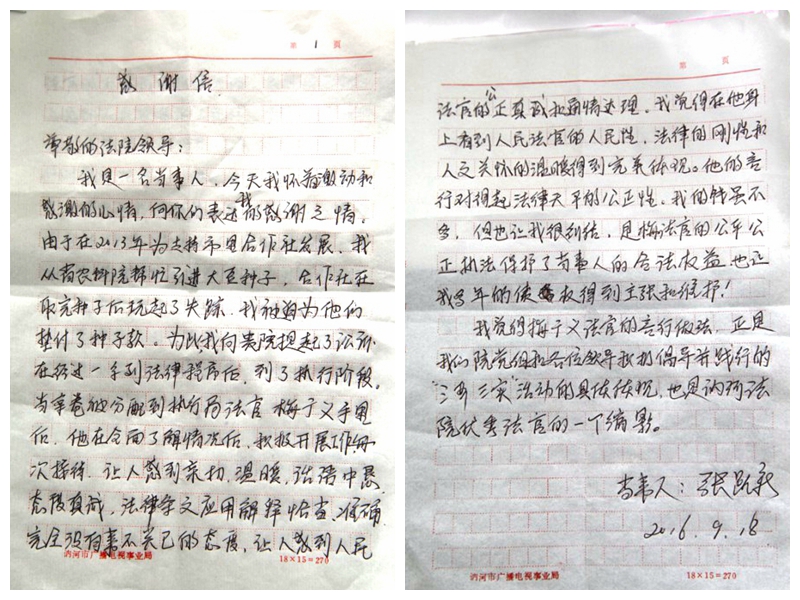 第 1 页
感谢信
尊敬的法院领导：
我是一名当事人，今天我怀着激动和
感谢的心情，向你们表达我的感谢之情。
由于在2013年为支持市里合作社发展，我
从省农科院帮忙引进大豆种子，合作社在
取完种子后玩起了失踪，我被迫为他们
垫付了种子款。为此我向法院提起了讼诉
在经过一系列法律程序后，到了执行阶段。
当案卷被分配到执行局法官梅于义手里
后，他在全面了解情况后，积极开展工作，每
次接待，让人感到亲切，温暖，话语中恳
态度真诚，法律条文应用解释恰当、准确
完全没有事不关己的态度，让人感到人民
讷河市广播电视事业局
18×15=270
第 页
法官的公正真诚和通情达理。我觉得在他身
上看到人民法官的人民性，法律的刚性和
人文关怀的温暖得到完美体现。他的言
行对得起法律天平的公正性。我的钱虽不
多，但也让我很纠结，是梅法官的公平公
正执法保护了当事人的合法权益也让
我多年的债权得到主张和维护！
我觉得梅于义法官的言行做法，正是
我们院党组和各位领导积极倡导并践行的
“三严三实”活动的具体体现，也是讷河法
院优秀法官的一个缩影。
当事人：张跃武
2016.9.18
讷河市广播电视事业局
18×15=270